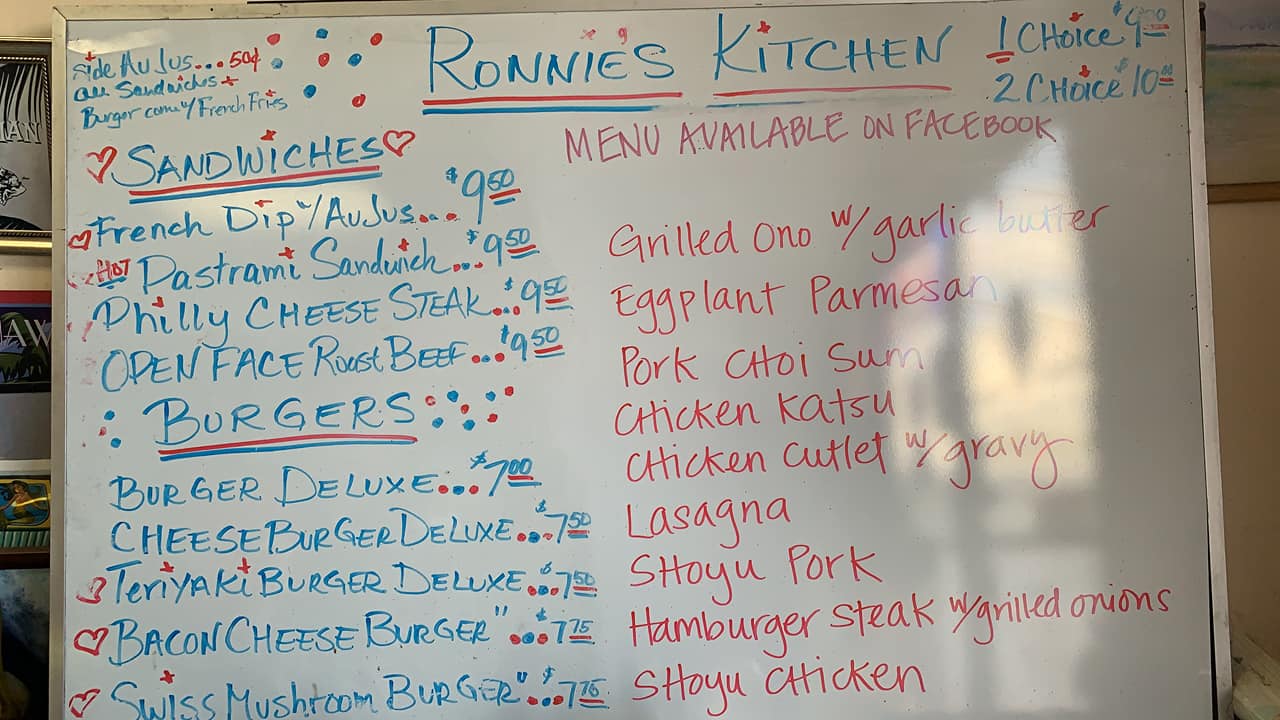 Side Au Jus... 50¢
all Sandwiches
Burger come w/ French Fries
RONNIE'S KITCHEN
1 CHOICE $9.00
2 CHOICE $10.00
MENU AVAILABLE ON FACEBOOK
SANDWICHES
French Dip w/ Au Jus... $9.50
HOT Pastrami Sandwich... $9.50
Philly CHEESE STEAK... $9.50
OPEN FACE Roast BEEF... $9.50
BURGERS
BURGER DELUXE... $7.00
CHEESE BURGER DELUXE... $7.50
TeriYAKi BURGER DELUXE... $7.50
BACON CHEESE BURGER "... $7.75
SWISS Mushroom BURGER "... $7.75
Grilled Ono w/ garlic butter
Eggplant Parmesan
Pork CHoi Sum
CHicken Katsu
CHicken Cutlet w/ gravy
Lasagna
SHoyu Pork
Hamburger Steak w/ grilled onions
SHoyu CHicken